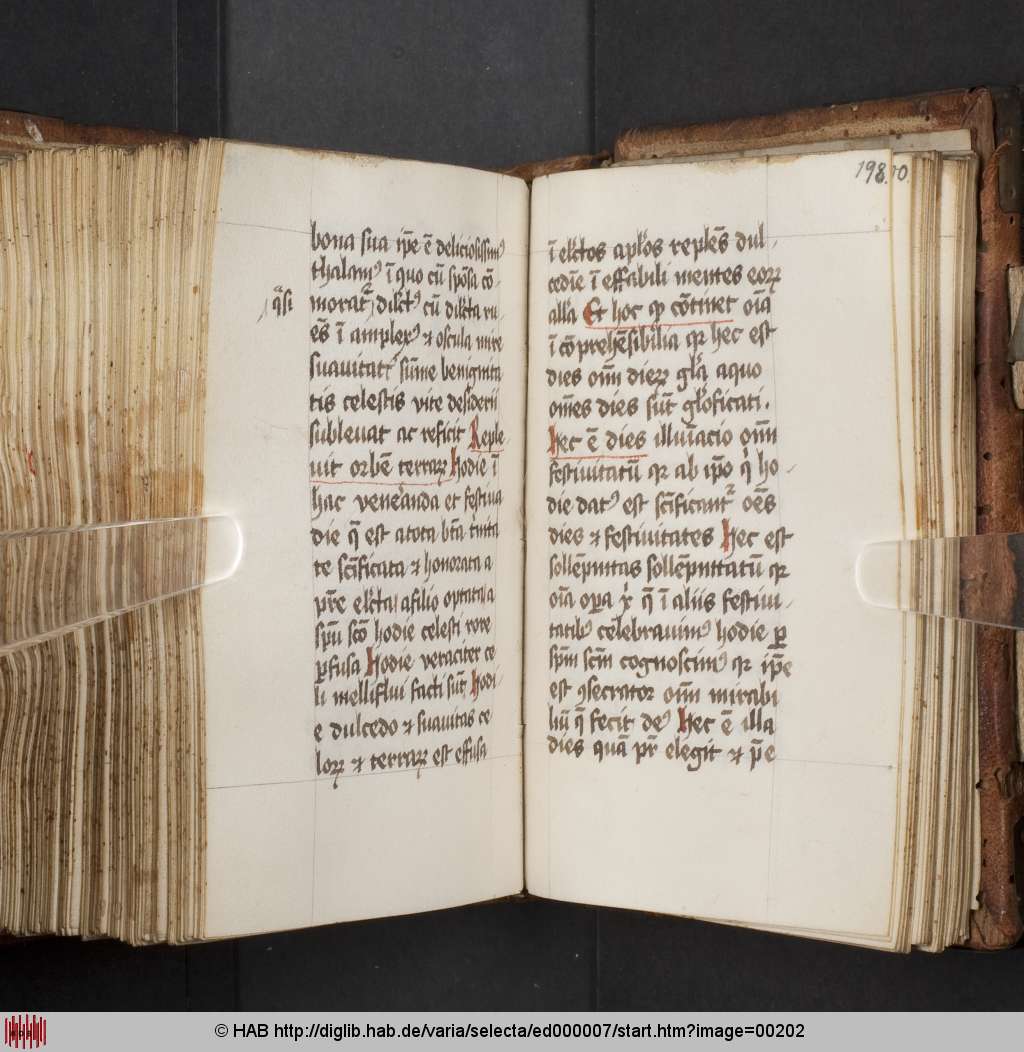 bona sua ip̄e ē deliciosissim9
thalam9 ī quo cū spōsa cō-
q̄si
moratr dilct9 cū dilcta ru-
ēs ī amplex9 ⁊ oscula mire
suauitatꝭ sūme benignita
tis celestis vite desiderii
subleuat ac reficit Reple-
uit orbē terraꝝ Hodie ī
hac veneranda et festiua
die q̄ est atota btā tnita
te scīficata ⁊ honorata a
pr̄e elcta afilio optata a
spū scō hodie celesti rore
ꝑfusa Hodie veraciter ce
li melliflui facti sūt Hodi-
e dulcedo ⁊ suauitas ce-
loꝝ ⁊ terraꝝ est effusa
198.
ī elctos aplos replēs dul-
cedīe ī effabili mentes eoꝝ
alla Et hoc qp cōtinet oīa
ī cōprehēsibilia qr hec est
dies oīm dieꝝ gla aquo
om̄es dies sūt gloficati.
Hec ē dies illuīacio oīm
festiuitatū qr ab ip̄o q ho-
die dat9 est scīficantr oēs
dies ⁊ festiuitates Hec est
sollēpnitas sollēpnitatū qr
oīa oꝑa xi q̄ ī aliis festiui-
tatib9 celebrauim9 hodie ꝑ
spm̄ scm̄ cognoscim9 qr ip̄e
est 9secrator oīm mirabi
liū q̄ fecit de9 Hec ē illa
dies quā pr̄ elegit ⁊ p̄e
© HAB http://diglib.hab.de/varia/selecta/ed000007/start.htm?image=00202